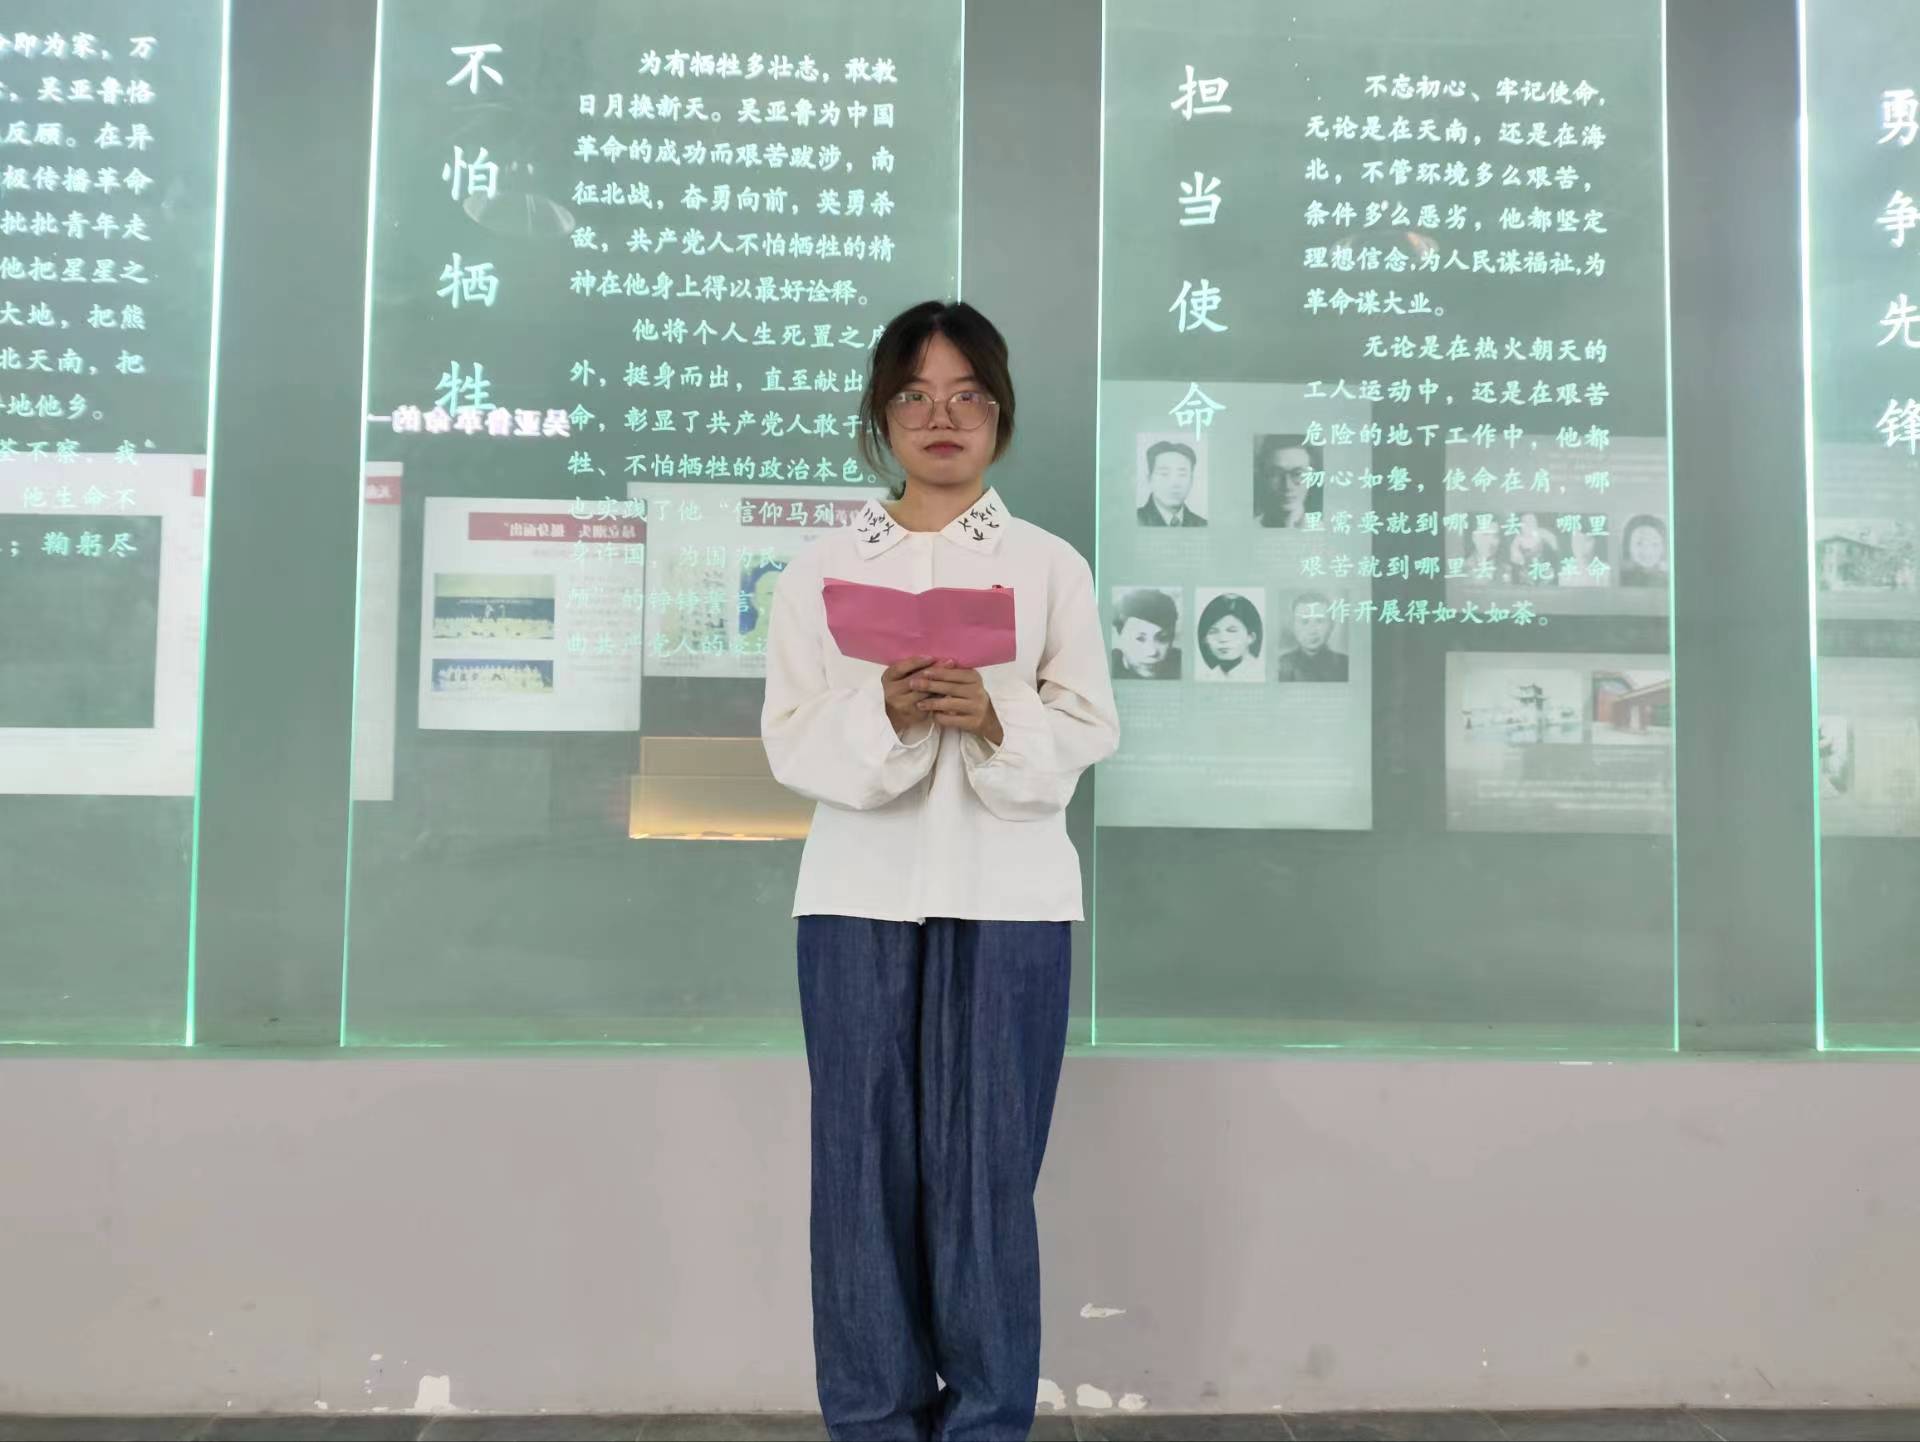 即为家，万
吴亚鲁恪
反顾。在异
极传播革命
批批青年走
他把星星之
大地，把熊
北天南，把
地他乡。
不察，我
他生命不
；鞠躬尽
不怕牺牲
为有牺牲多壮志，敢教
日月换新天。吴亚鲁为中国
革命的成功而艰苦跋涉，南
征北战，奋勇向前，英勇杀
敌，共产党人不怕牺牲的精
神在他身上得以最好诠释。
他将个人生死置之
外，挺身而出，直至献出
命，彰显了共产党人敢于
牲、不怕牺牲的政治本色。
也实践了他“信仰马列
身许国，为国为民
的铮铮誓言
曲共产党人的
吴亚鲁革命的一
昂立潮头 挺身而出
担当使命
不忘初心、牢记使命，
无论是在天南，还是在海
北，不管环境多么艰苦，
条件多么恶劣，他都坚定
理想信念,为人民谋福祉,为
革命谋大业。
无论是在热火朝天的
工人运动中，还是在艰苦
危险的地下工作中，他都
初心如磐，使命在肩，哪
里需要就到哪里去，哪里
艰苦就到哪里去，把革命
工作开展得如火如荼。
勇争先锋